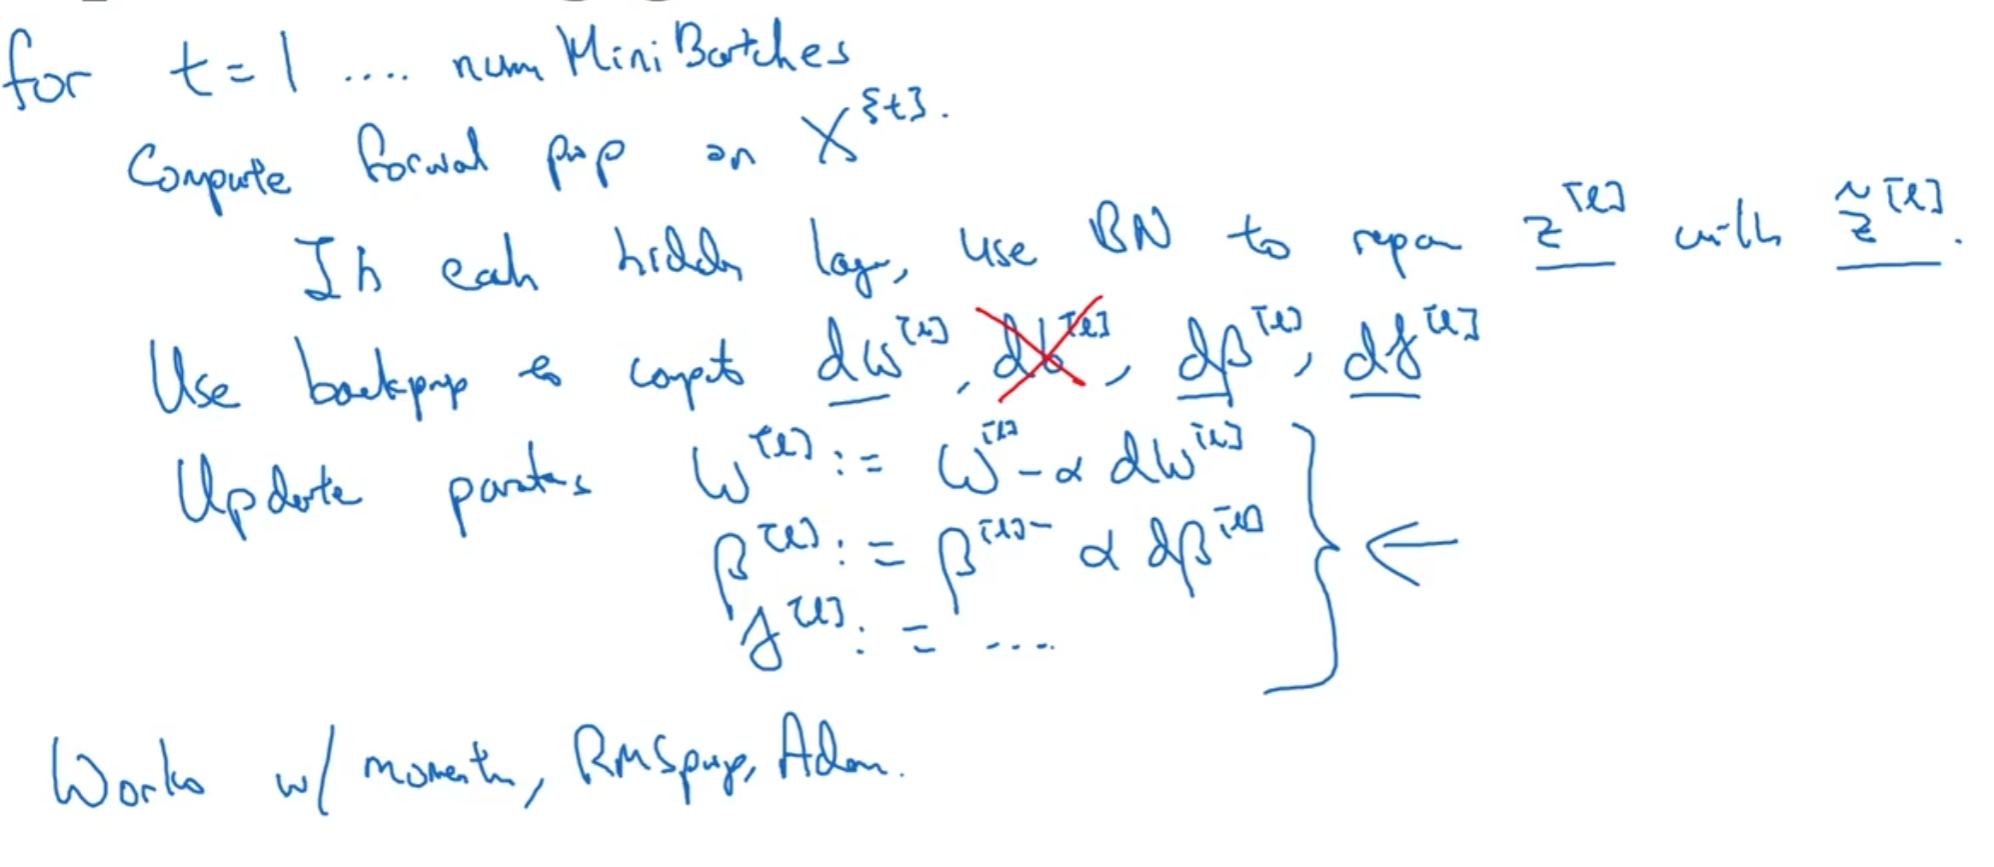 for t=1 .... num MiniBatches
Compute forwal prop on X^{t}.
In eah hidden lay, use BN to repan z^[l] with z̃^[l].
Use backprop to compt dw^[l], db^[l], dβ^[l], dγ^[l]
Update w^[l] := w^[l] - α dw^[l]
β^[l] := β^[l] - α dβ^[l]
γ^[l] := ....
Works w/ moment, RMSprop, Adam.